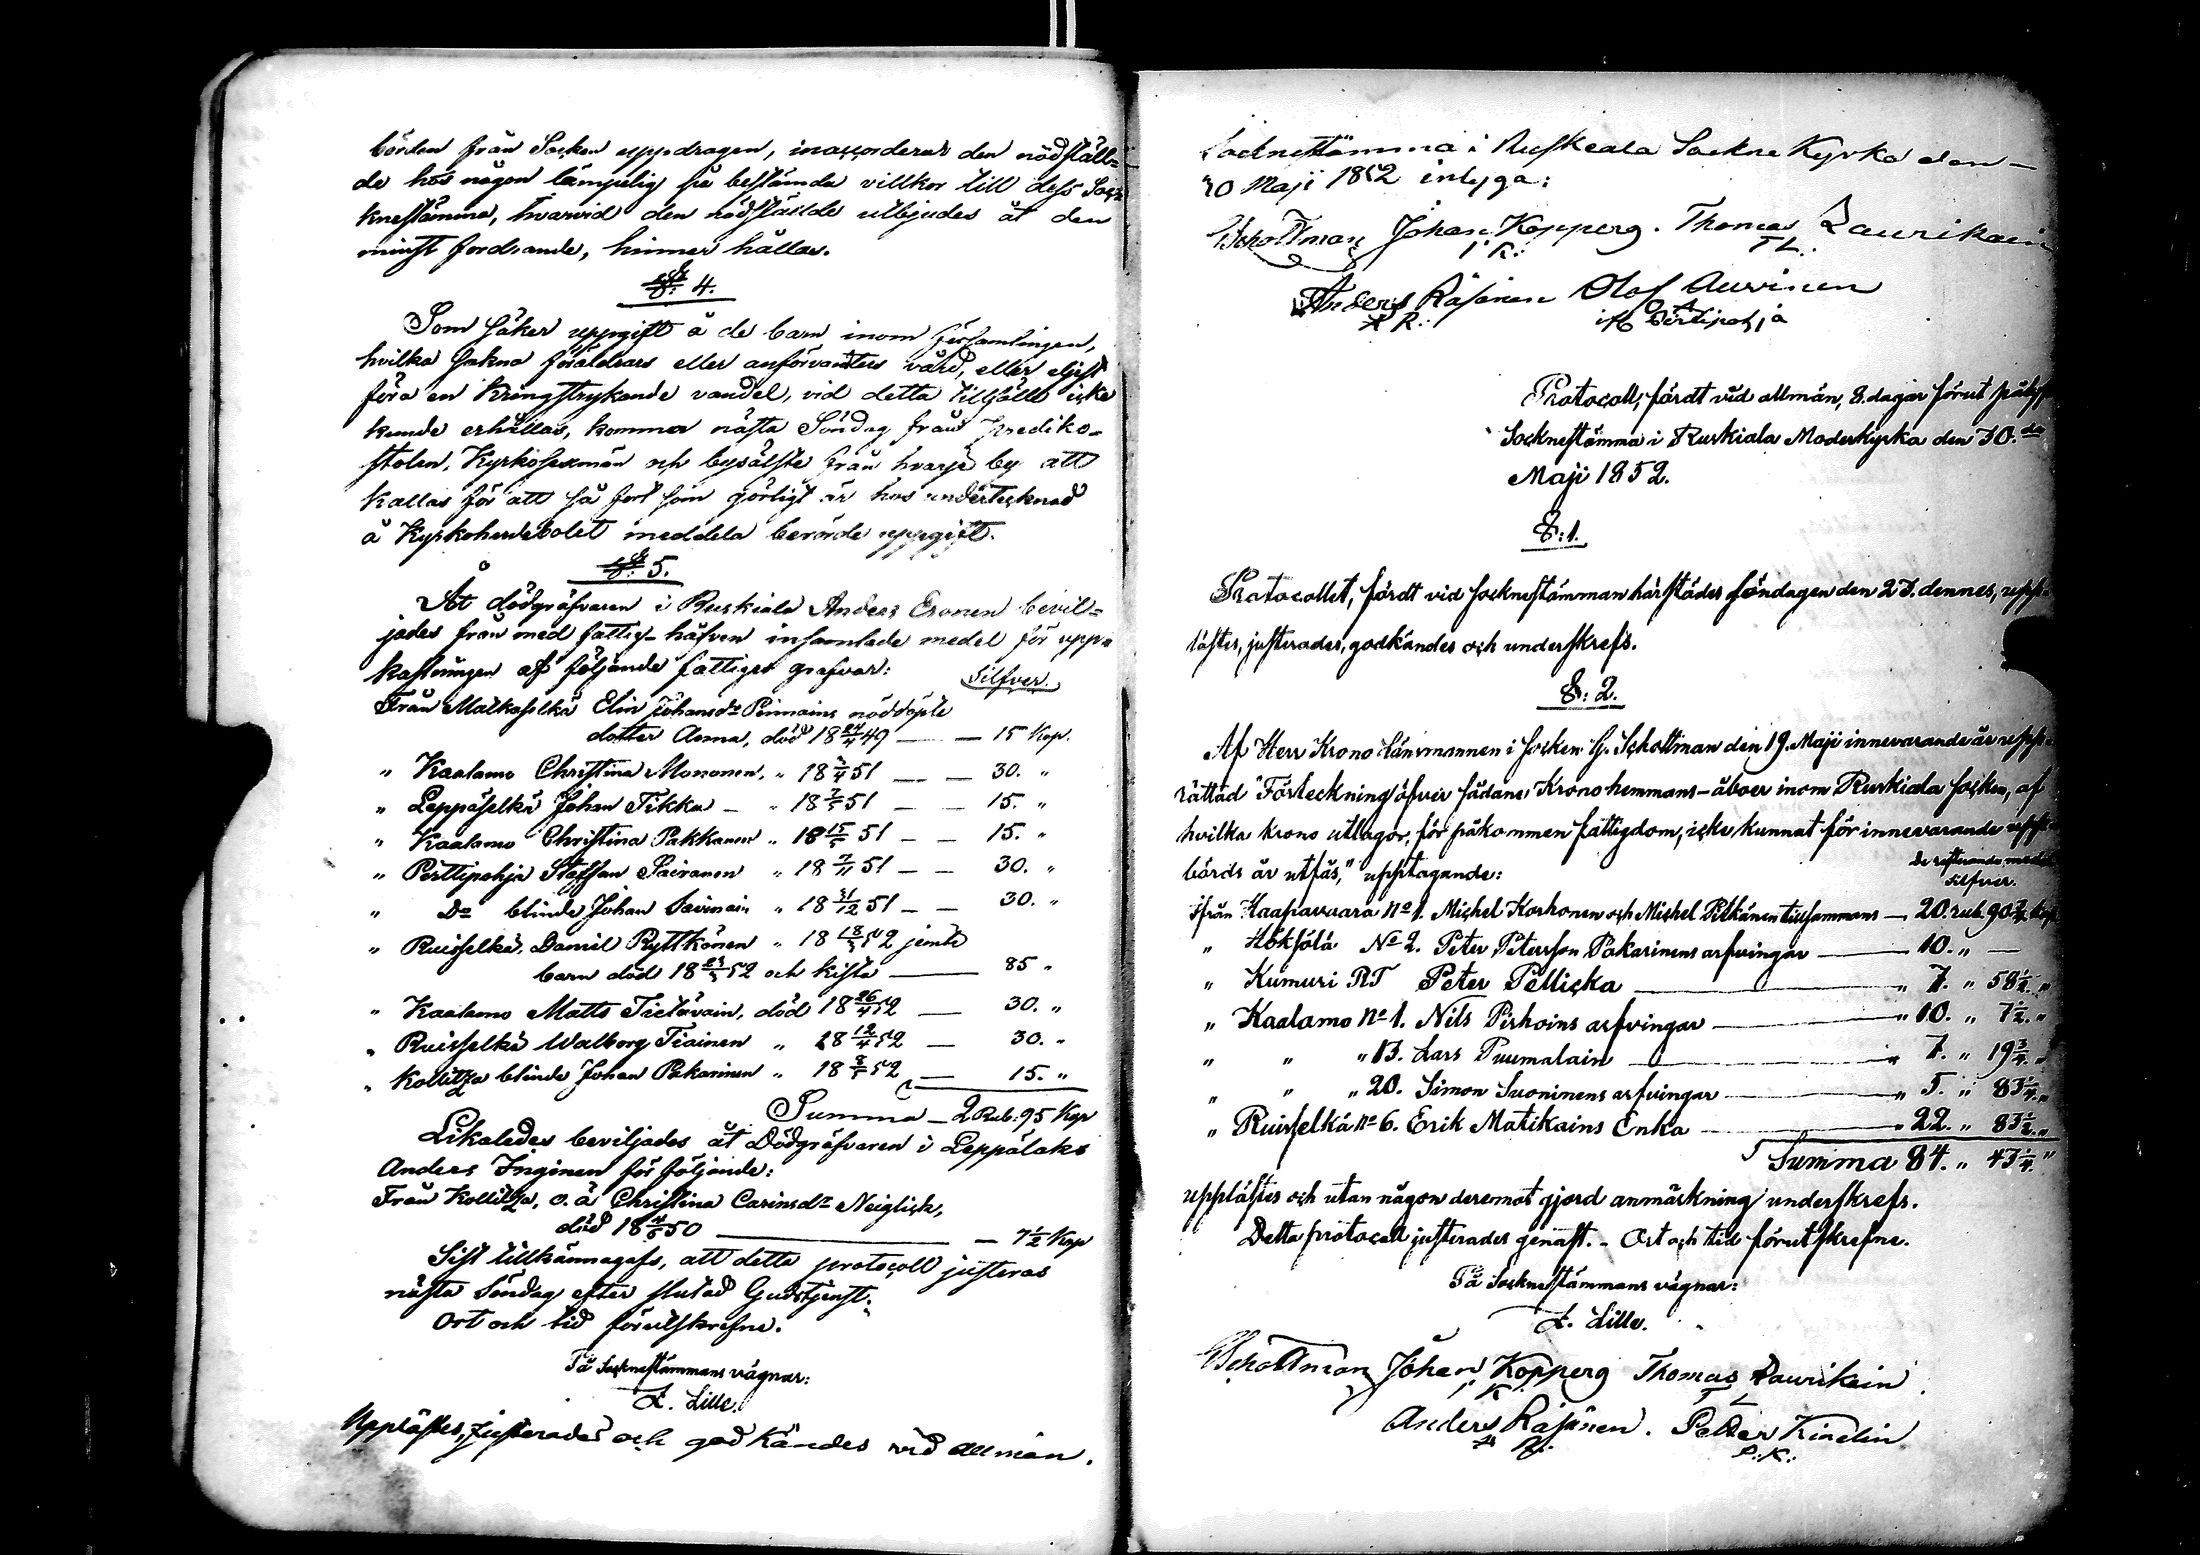 börden från Socken uppdragen, inaccorderas den nödställ-
de hos någon lämpelig på bestämda villkor till dess Soc-
knestämma, hvarvid den nödstälde utbjudes åt den
minst fordrande, hinner hållas.
§: 4.
Som säker uppgift å de barn inom församlingen,
hvilka sakna föräldrars eller anförvanters vård, eller eljest
föra en kringstrykande vandel, vid detta tillfälle icke
kunde erhållas, kommer nästa Söndag från prediko-
stolen, Kyrkosexmän och byeälste från hvarje by att
kallas för att så fort som görligt är hos undertecknad
å Kyrkoherdebolet meddela berörde uppgift.
§: 5.
Åt dödgräfvaren i Ruskiala Anders Eronen bevil-
jades från med fattig-håfven insamlade medel för upp-
kastningen af följande fattiges grafvar:
Silfver.
Från Matkaselkä Elin Johansdr Pinnoins nöddöpte
dotter Anna, död 18 24/4 49 — — 15 Kop.
" Kaalamo Christina Mononen, " 18 2/4 51 — — 30. "
" Leppäselkä Johan Tikka — " 18 7/5 51 — — 15. "
" Kaalamo Christina Pakkanen " 18 15/5 51 — — 15. "
" Perttipohja Staffan Sairanen " 18 7/11 51 — — 30. "
" Do blinde Johan Savinain " 18 31/12 51 — — 30. "
" Ruisselkä Daniel Ryttkönen " 18 18/3 52 jemte
barn död 18 23/3 52 och kista — 85 "
" Kaalamo Matts Tietäväin, död 18 26/4 52 — 30. "
" Ruisselkä Walborg Tiainen " 18 12/4 52 — 30. "
" Kollitza blinde Johan Pakarinen " 18 8/5 52 — 15. "
Summa — 2 Rub. 95 Kop
Likaledes beviljades åt Dödgräfvaren i Leppälaks
Anders Inginen för följande:
Från Kollitza, o. ä Christina Carinsdr Neiglick,
död 18 4/5 50 — — 7 1/2 Kop
Sist tillkännagafs, att detta protocoll justeras
nästa Söndag efter slutad Gudstjenst.
Ort och tid förutskrefne.
På Socknestämmans vägnar:
L. Lille.
Upplästes, justerades och godkändes vid allmän
Socknestämma i Ruskeala Sockne Kyrka den —
30 Maji 1852 intyga:
GSchottman Johan Kopperg. Thomas Laurikain
I K: T L.
Anders Räsänen Olof Auvinen
A R: O A
ifr Pirtipohja
Protocoll, fördt vid allmän, 8. dagar förut pålyst
Socknestämma i Ruskiala Moderkyrka den 30.de
Maji 1852.
§: 1.
Protocollet, fördt vid socknestämman härstädes söndagen den 23. dennes, upp-
lästes, justerades, godkändes och underskrefs.
§: 2.
Af Herr Krono Länsmannen i socken G. Schottman den 19. Maji innevarande år upp-
rättad "Förteckning öfver sådane Krono hemmans-åboer inom Ruskiala socken, af
hvilka krono utlagor, för påkommen fattigdom, icke kunnat för innevarande upp-
börds år utfås," upptagande:
De resterande medel
silfver.
Ifrån Haapavaara No 1. Michel Korhonen och Michel Pitkänen tillsammans — 20. rub. 90 3/4 Kop
" Höksölä No 2. Peter Petersson Pakarinens arfvingar — 10. " —
" Kumuri RT Peter Pellicka — " 7. " 58 1/2 "
" Kaalamo No 1. Nils Pirhoins arfvingar — " 10. " 7 1/2 "
" " " 13. Lars Puumalain — " 7. " 19 3/4 "
" " " 20. Simon Suoninens arfvingar — " 5. " 83 1/4 "
" Ruisselkä No 6. Erik Matikains Enka — " 22. " 83 1/2 "
Summa 84. " 43 1/4 "
upplästes och utan någon deremot gjord anmärkning underskrefs.
Detta protocoll justerades genast. – Ort och tid förutskrefne.
På Socknestämmans vägnar:
L. Lille.
GSchottman Johan Kopperg Thomas Laurikain
I K: T L
Anders Räsänen. Petter Kindin
A R: P: K: